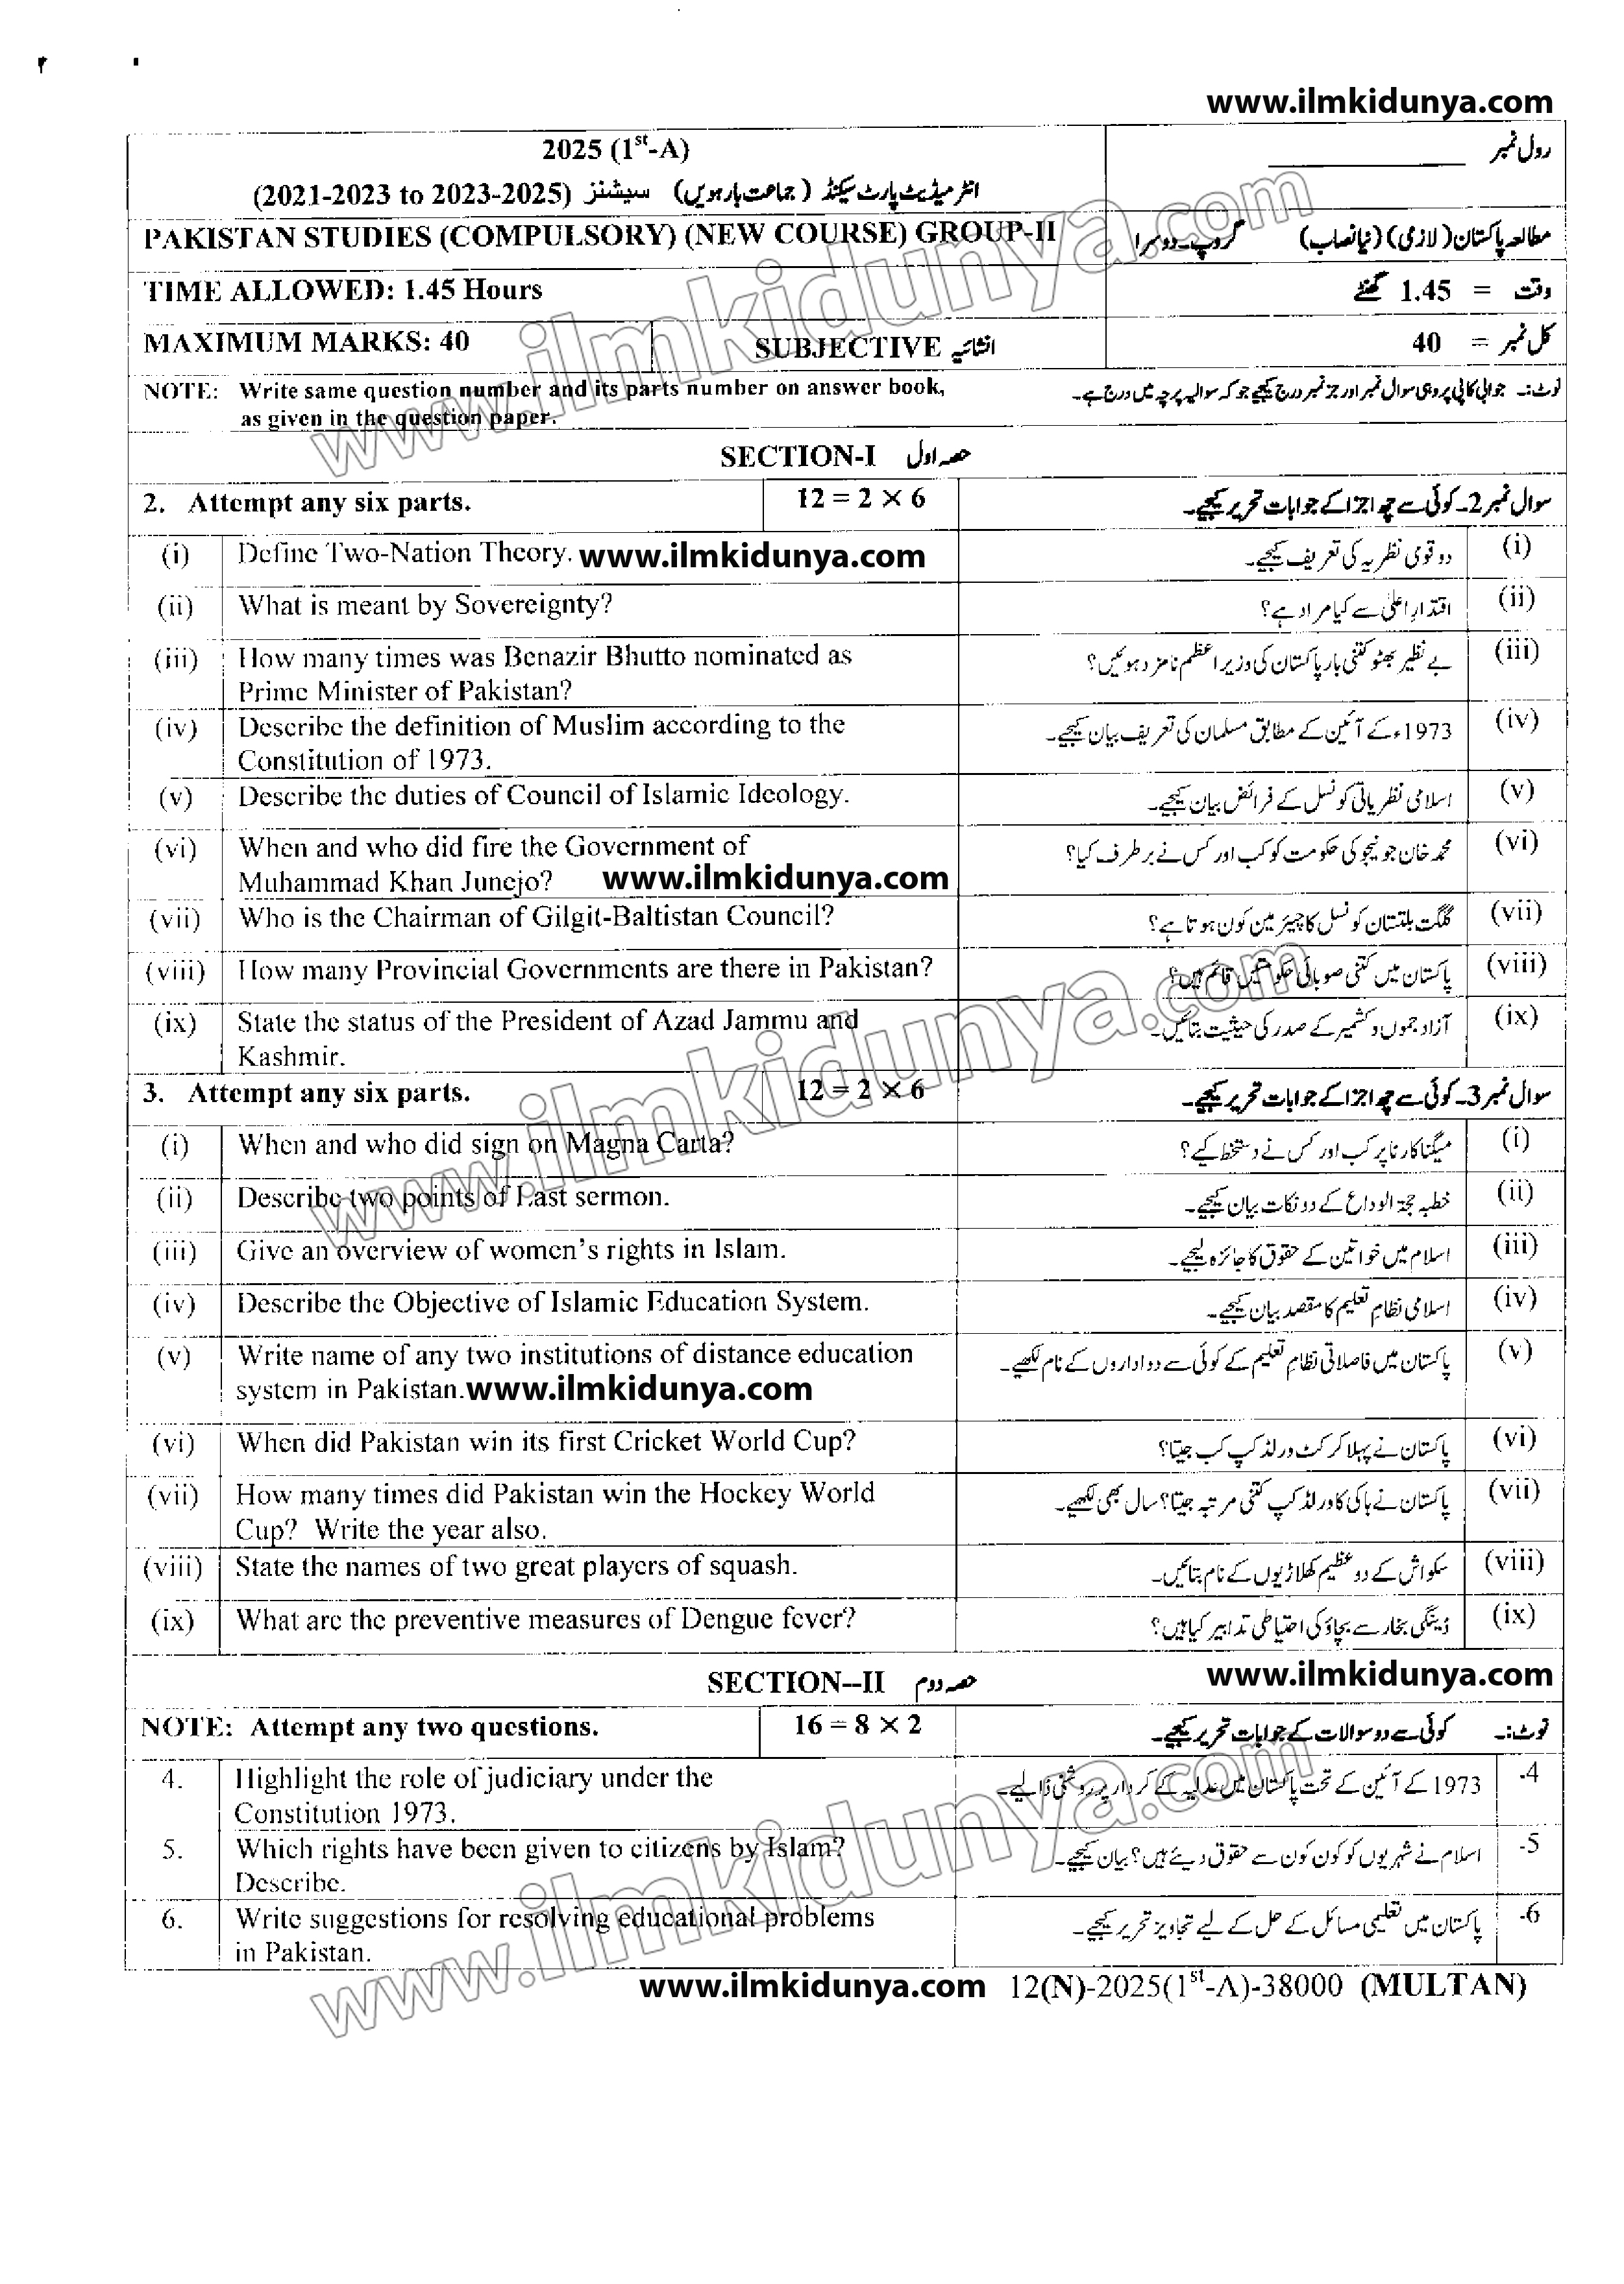 www.ilmkidunya.com
2025 (1st-A)
رول نمبر
انٹرمیڈیٹ پارٹ سیکنڈ (جماعت بارہویں) سیشنز (2021-2023 to 2023-2025)
PAKISTAN STUDIES (COMPULSORY) (NEW COURSE) GROUP-II
مطالعہ پاکستان (لازمی) (نیا نصاب) گروپ۔دوسرا
TIME ALLOWED: 1.45 Hours
وقت = 1.45 گھنٹے
MAXIMUM MARKS: 40
SUBJECTIVE انشائیہ
کل نمبر = 40
NOTE: Write same question number and its parts number on answer book,
as given in the question paper.
نوٹ:۔ جوابی کاپی پر وہی سوال نمبر اور جز نمبر درج کیجیے جو کہ سوالیہ پرچہ میں درج ہے۔
SECTION-I حصہ اول
2. Attempt any six parts.
12 = 2 × 6
سوال نمبر 2۔ کوئی سے چھ اجزا کے جوابات تحریر کیجیے۔
(i) Define Two-Nation Theory. www.ilmkidunya.com
دو قومی نظریہ کی تعریف کیجیے۔ (i)
(ii) What is meant by Sovereignty?
اقتدارِ اعلیٰ سے کیا مراد ہے؟ (ii)
(iii) How many times was Benazir Bhutto nominated as
Prime Minister of Pakistan?
بے نظیر بھٹو کتنی بار پاکستان کی وزیر اعظم نامزد ہوئیں؟ (iii)
(iv) Describe the definition of Muslim according to the
Constitution of 1973.
1973ء کے آئین کے مطابق مسلمان کی تعریف بیان کیجیے۔ (iv)
(v) Describe the duties of Council of Islamic Ideology.
اسلامی نظریاتی کونسل کے فرائض بیان کیجیے۔ (v)
(vi) When and who did fire the Government of
Muhammad Khan Junejo? www.ilmkidunya.com
محمد خان جونیجو کی حکومت کو کب اور کس نے برطرف کیا؟ (vi)
(vii) Who is the Chairman of Gilgit-Baltistan Council?
گلگت بلتستان کونسل کا چیئر مین کون ہوتا ہے؟ (vii)
(viii) How many Provincial Governments are there in Pakistan?
پاکستان میں کتنی صوبائی حکومتیں قائم ہیں؟ (viii)
(ix) State the status of the President of Azad Jammu and
Kashmir.
آزاد جموں و کشمیر کے صدر کی حیثیت بتائیں۔ (ix)
3. Attempt any six parts.
12 = 2 × 6
سوال نمبر 3۔ کوئی سے چھ اجزا کے جوابات تحریر کیجیے۔
(i) When and who did sign on Magna Carta?
میگنا کارٹا پر کب اور کس نے دستخط کیے؟ (i)
(ii) Describe two points of Last sermon.
خطبہ حجۃ الوداع کے دو نکات بیان کیجیے۔ (ii)
(iii) Give an overview of women's rights in Islam.
اسلام میں خواتین کے حقوق کا جائزہ لیجیے۔ (iii)
(iv) Describe the Objective of Islamic Education System.
اسلامی نظامِ تعلیم کا مقصد بیان کیجیے۔ (iv)
(v) Write name of any two institutions of distance education
system in Pakistan.www.ilmkidunya.com
پاکستان میں فاصلاتی نظامِ تعلیم کے کوئی سے دو اداروں کے نام لکھیے۔ (v)
(vi) When did Pakistan win its first Cricket World Cup?
پاکستان نے پہلا کرکٹ ورلڈ کپ کب جیتا؟ (vi)
(vii) How many times did Pakistan win the Hockey World
Cup? Write the year also.
پاکستان نے ہاکی کا ورلڈ کپ کتنی مرتبہ جیتا؟ سال بھی لکھیے۔ (vii)
(viii) State the names of two great players of squash.
سکواش کے دو عظیم کھلاڑیوں کے نام بتائیں۔ (viii)
(ix) What are the preventive measures of Dengue fever?
ڈینگی بخار سے بچاؤ کی احتیاطی تدابیر کیا ہیں؟ (ix)
SECTION--II حصہ دوم
www.ilmkidunya.com
NOTE: Attempt any two questions.
16 = 8 × 2
نوٹ:۔ کوئی سے دو سوالات کے جوابات تحریر کیجیے۔
4. Highlight the role of judiciary under the
Constitution 1973.
1973 کے آئین کے تحت پاکستان میں عدلیہ کے کردار پر روشنی ڈالیے۔ -4
5. Which rights have been given to citizens by Islam?
Describe.
اسلام نے شہریوں کو کون کون سے حقوق دیئے ہیں؟ بیان کیجیے۔ -5
6. Write suggestions for resolving educational problems
in Pakistan.
پاکستان میں تعلیمی مسائل کے حل کے لیے تجاویز تحریر کیجیے۔ -6
www.ilmkidunya.com 12(N)-2025(1st-A)-38000 (MULTAN)
www.ilmkidunya.com
www.ilmkidunya.com
www.ilmkidunya.com